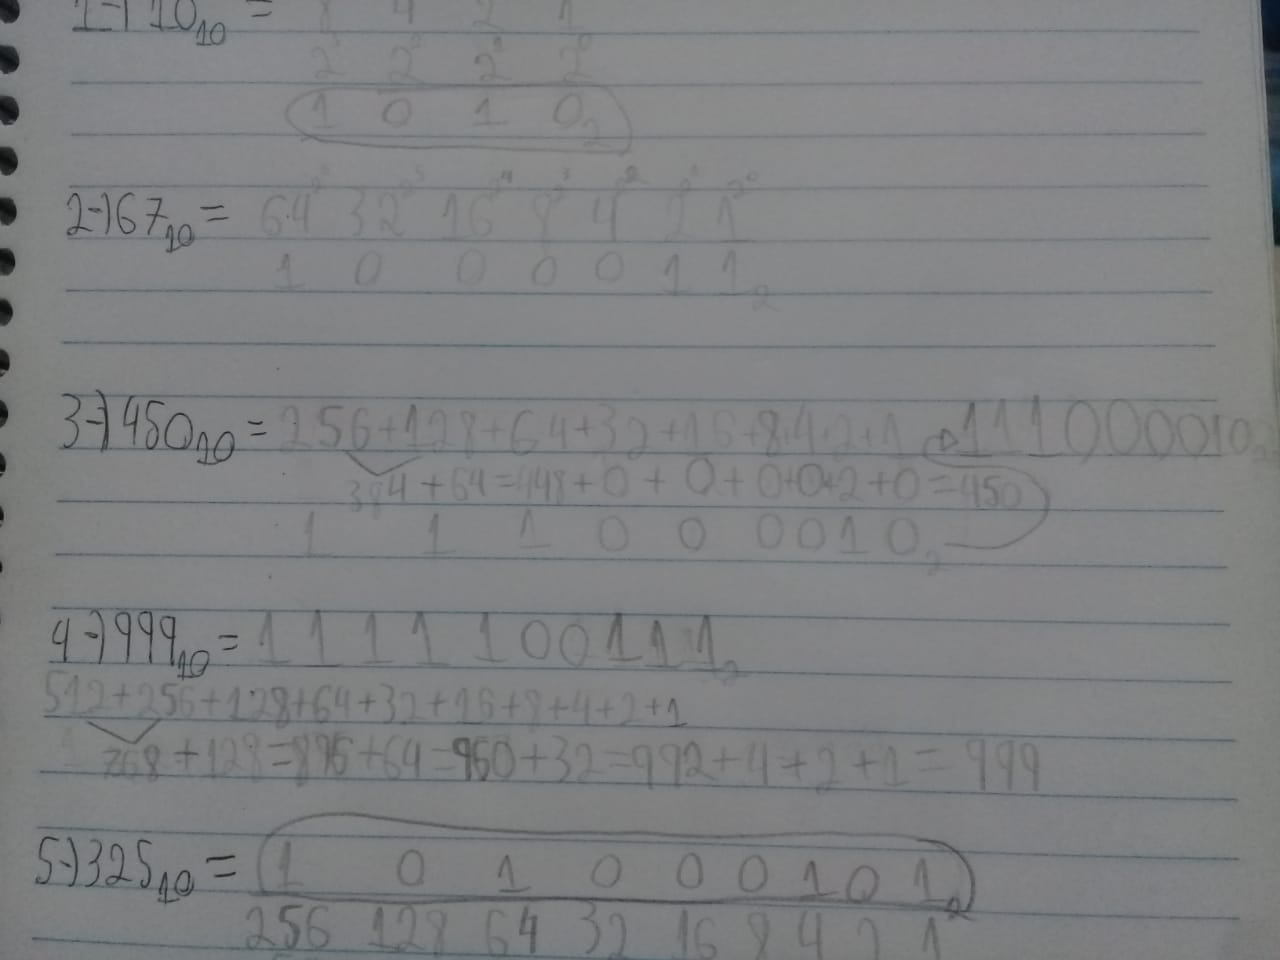 1-) 10₁₀ = 8 4 2 1
2³ 2² 2¹ 2⁰
1 0 1 0₂
2-) 67₁₀ = 64 2⁶ 32 2⁵ 16 2⁴ 8 2³ 4 2² 2 2¹ 1 2⁰
1 0 0 0 0 1 1₂
3-) 450₁₀ = 256+128+64+32+16+8+4+2+1 → 111000010₂
384+64=448+0+0+0+0+2+0=450
1 1 1 0 0 0 0 1 0₂
4-) 999₁₀ = 1 1 1 1 1 0 0 1 1 1₂
512+256+128+64+32+16+8+4+2+1
1 768+128=896+64=960+32=992+4+2+1=999
5-) 325₁₀ = 1 0 1 0 0 0 1 0 1₂
256 128 64 32 16 8 4 2 1